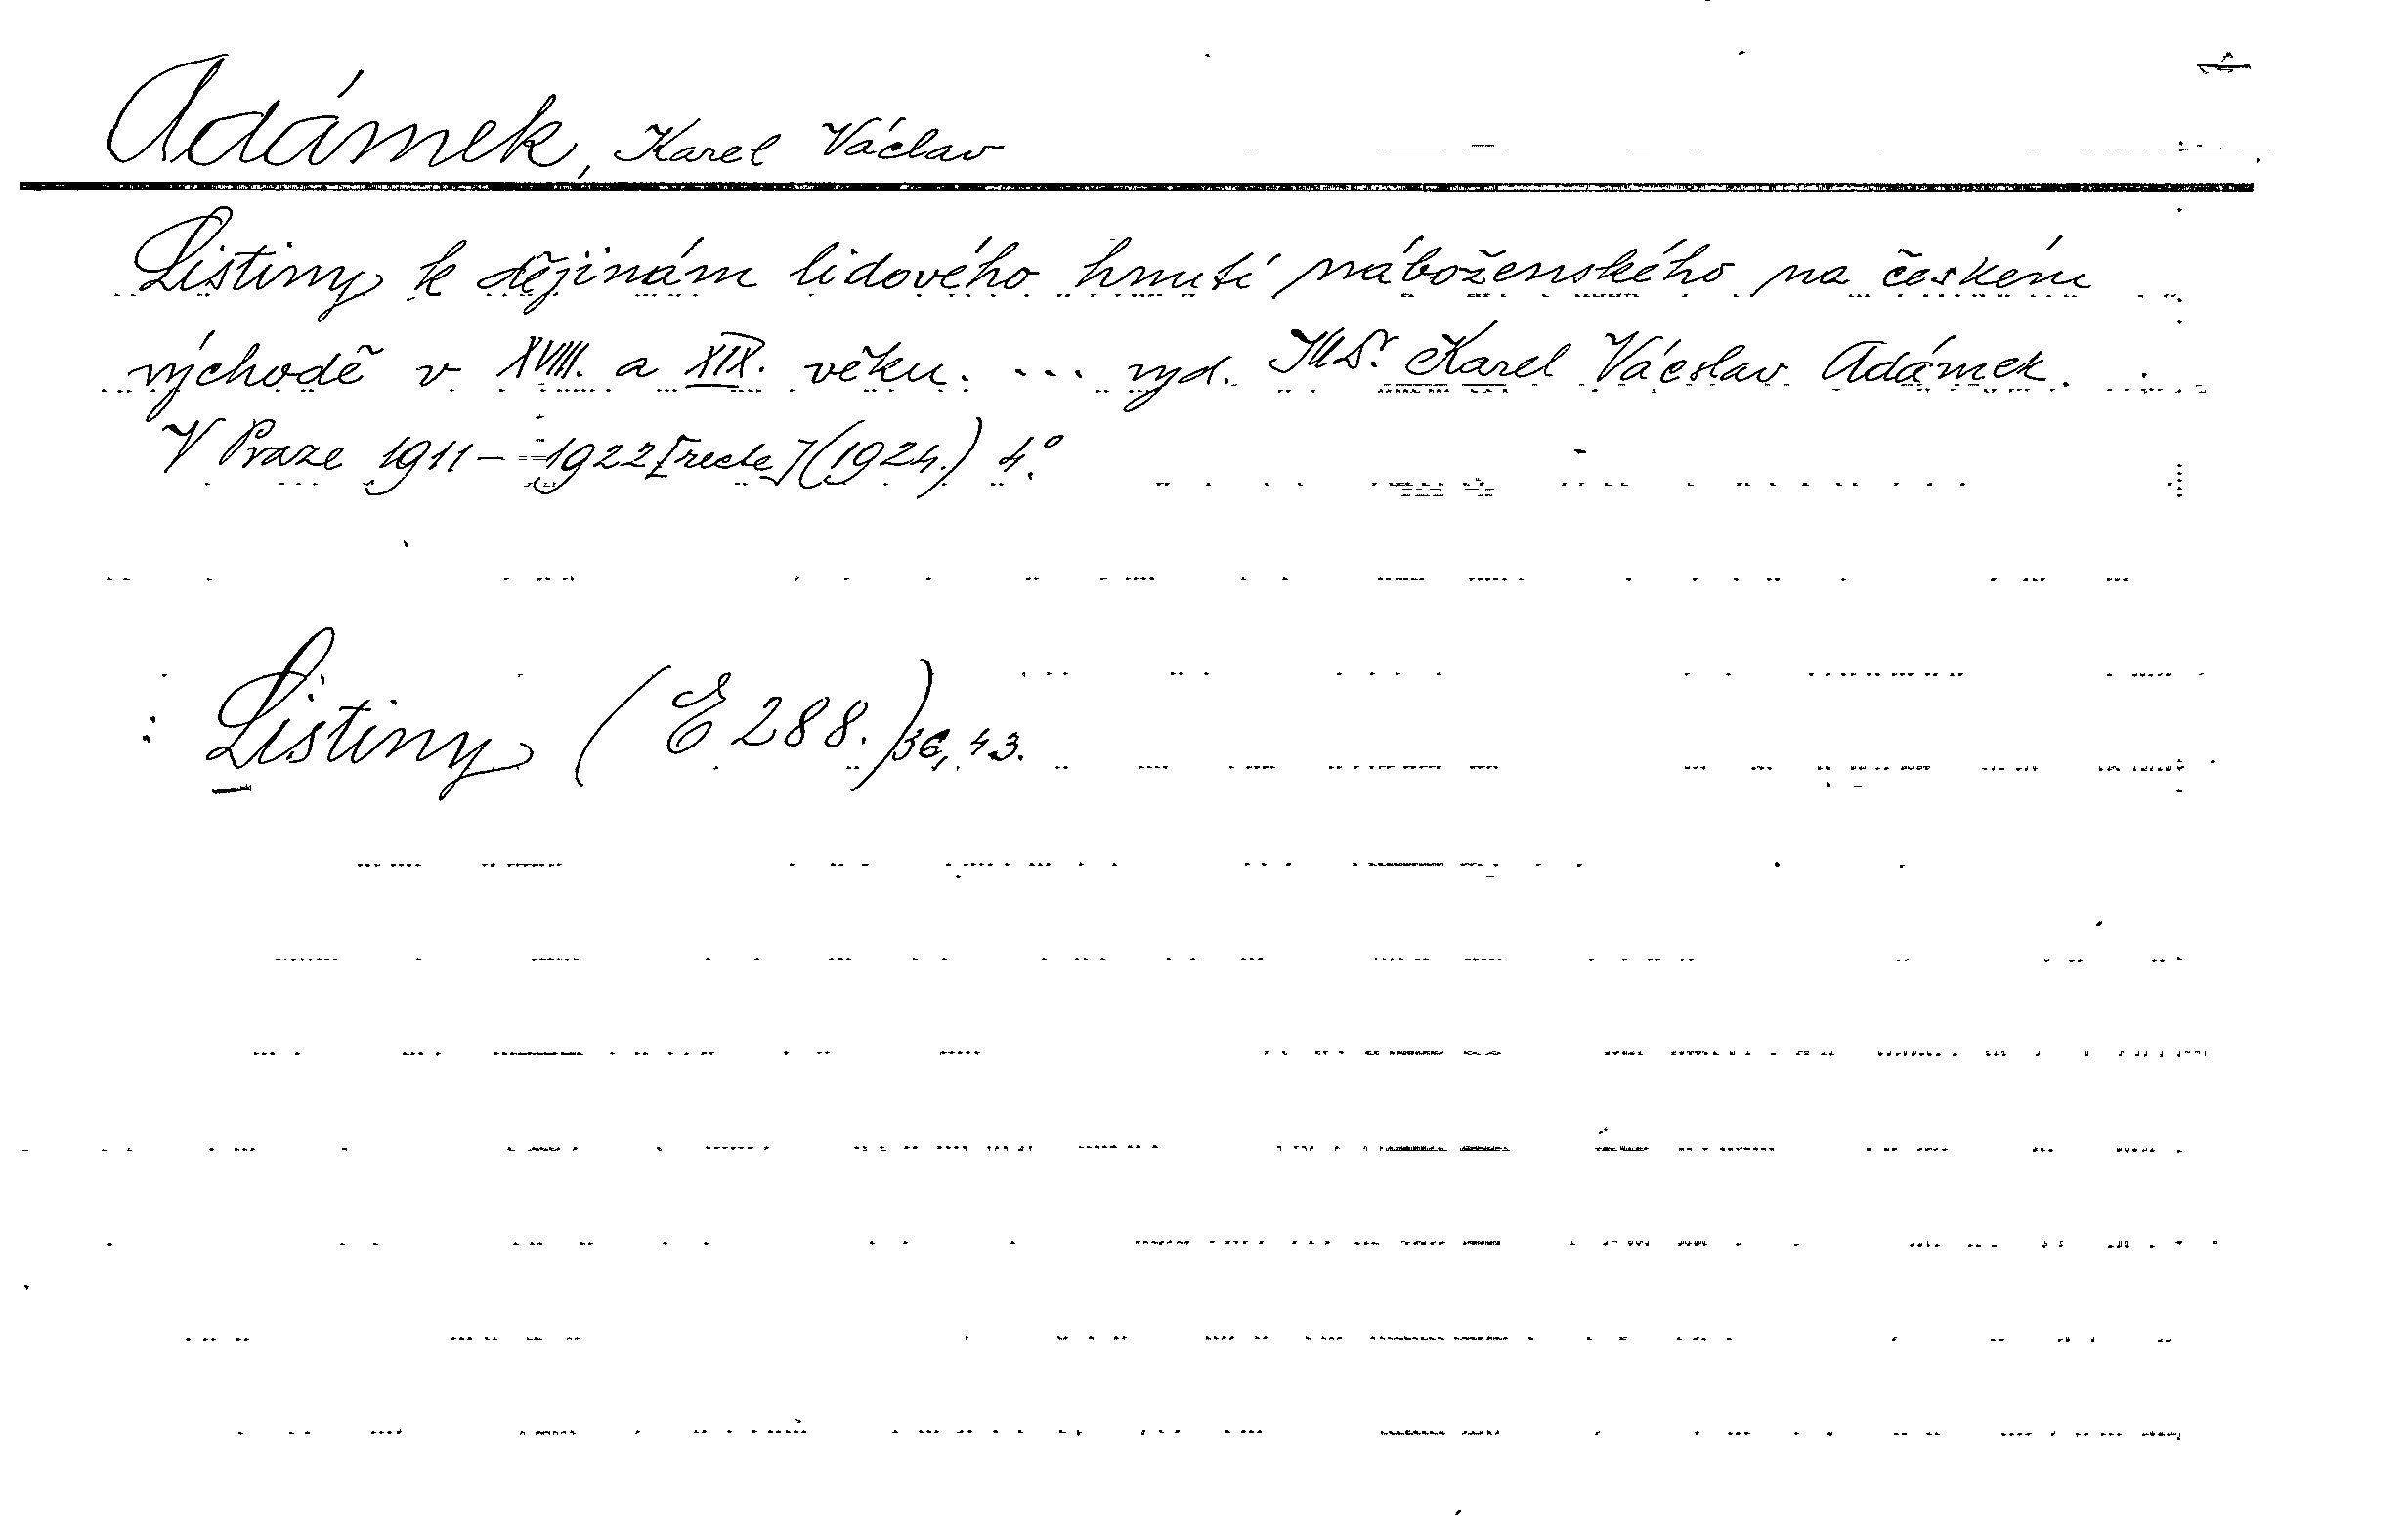 Adámek, Karel Václav
Listiny k dějinám lidového hnutí náboženského na českém
východě v XVIII. a XIX. věku. ... vyd. JUDr. Karel Václav Adámek.
V Praze 1911–1922 [recte] (1924.) 4°.
Listiny (E 288.) 36, 43.